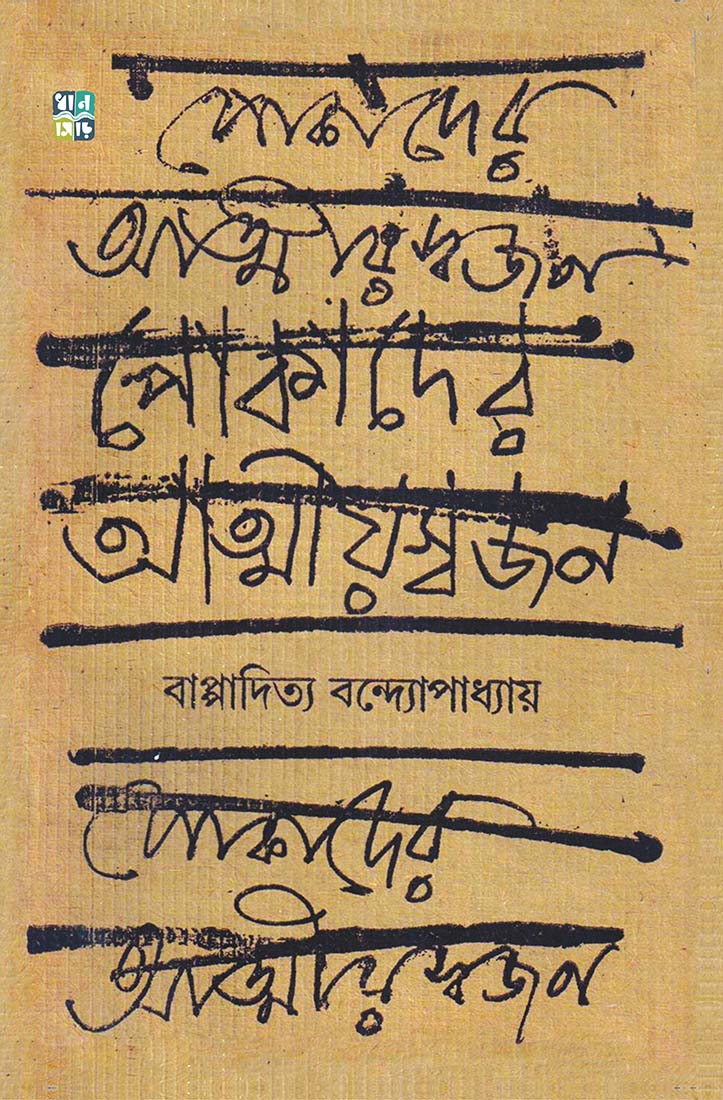 ধান
সিড়ি
পোকাদের
আত্মীয়স্বজন
পোকাদের
আত্মীয়স্বজন
বাপ্পাদিত্য বন্দ্যোপাধ্যায়
পোকাদের
আত্মীয়স্বজন